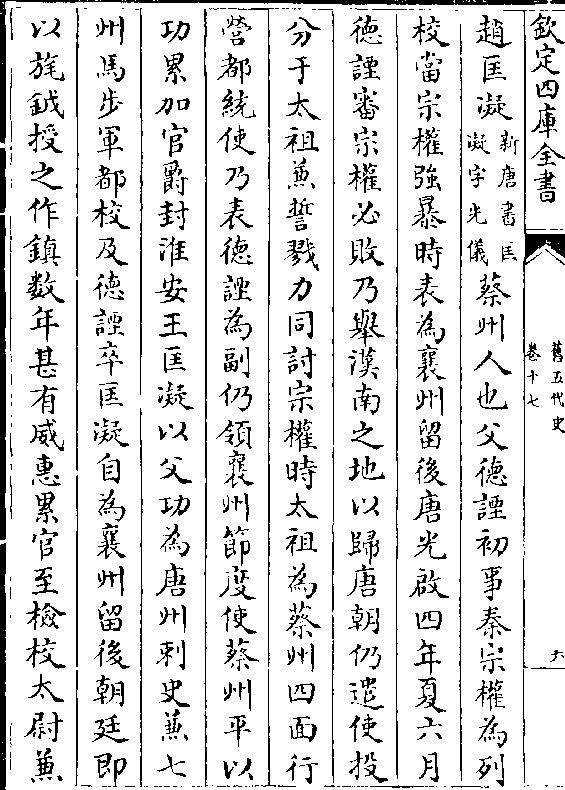 欽定四庫全書
舊五代史
卷十七
六
趙匡凝新唐書匡凝字光儀蔡州人也父德諲初事秦宗權為列
校當宗權強暴時表為襄州留後唐光啟四年夏六月
德諲審宗權必敗乃舉漢南之地以歸唐朝仍遣使投
分于太祖兼誓戮力同討宗權時太祖為蔡州四面行
營都統使乃表德諲為副仍領襄州節度使蔡州平以
功累加官爵封淮安王匡凝以父功為唐州刺史兼七
州馬步軍都校及德諲卒匡凝自為襄州留後朝廷即
以旄鉞授之作鎮数年甚有威惠累官至檢校太尉兼